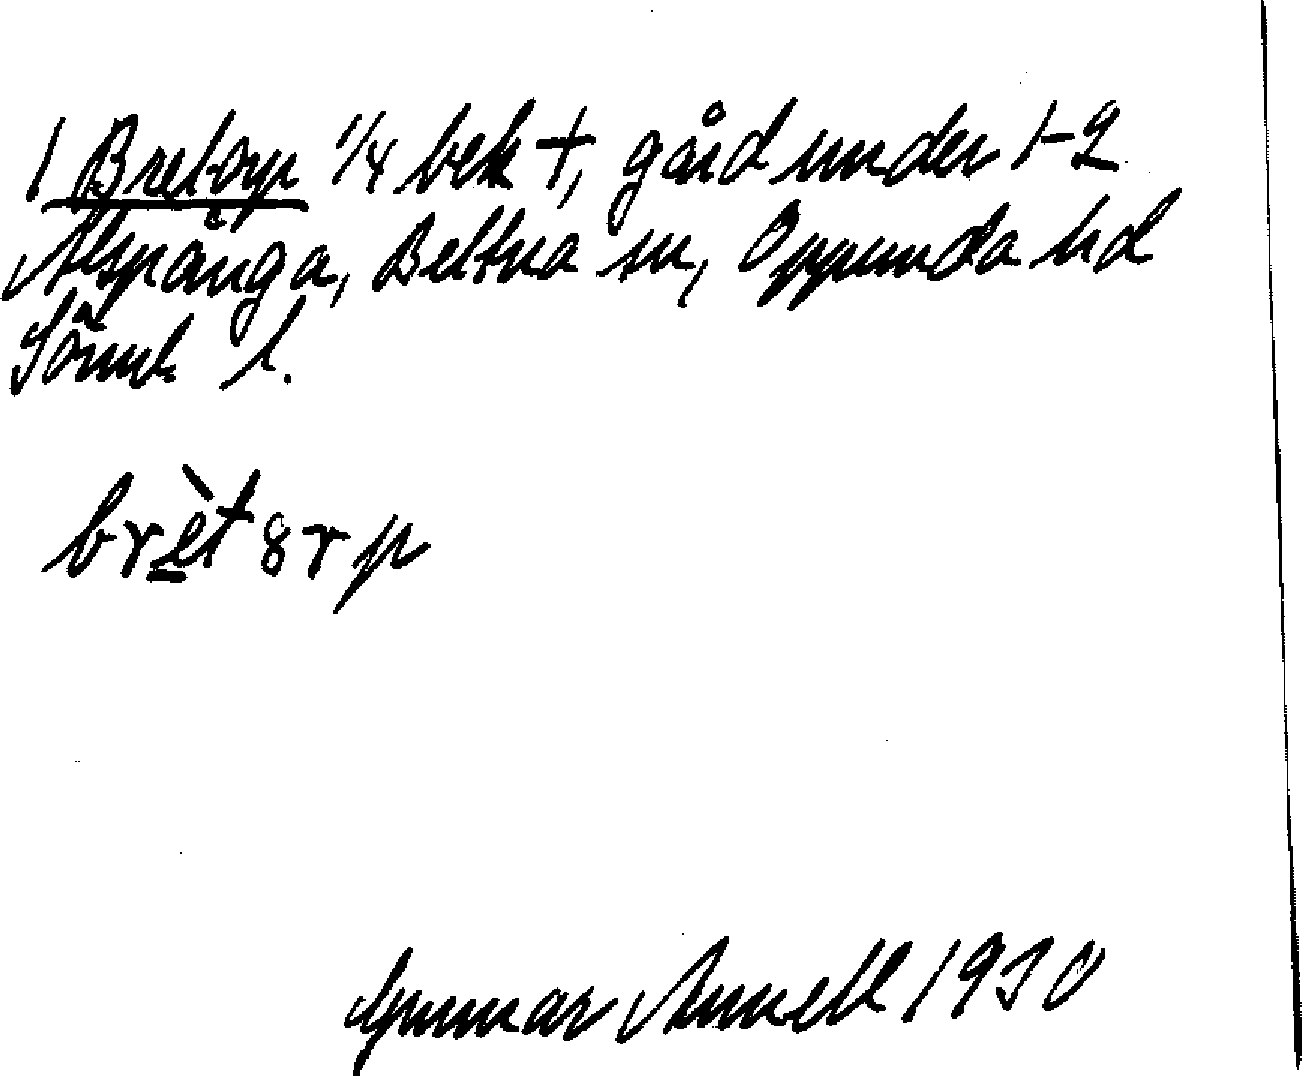 1 Bretorp 1/4 bek †, gård under 1-2
Alspånga, Bettna sn, Oppunda hd
Sörml. l.
brèt8rp
Gunnar Annell 1930